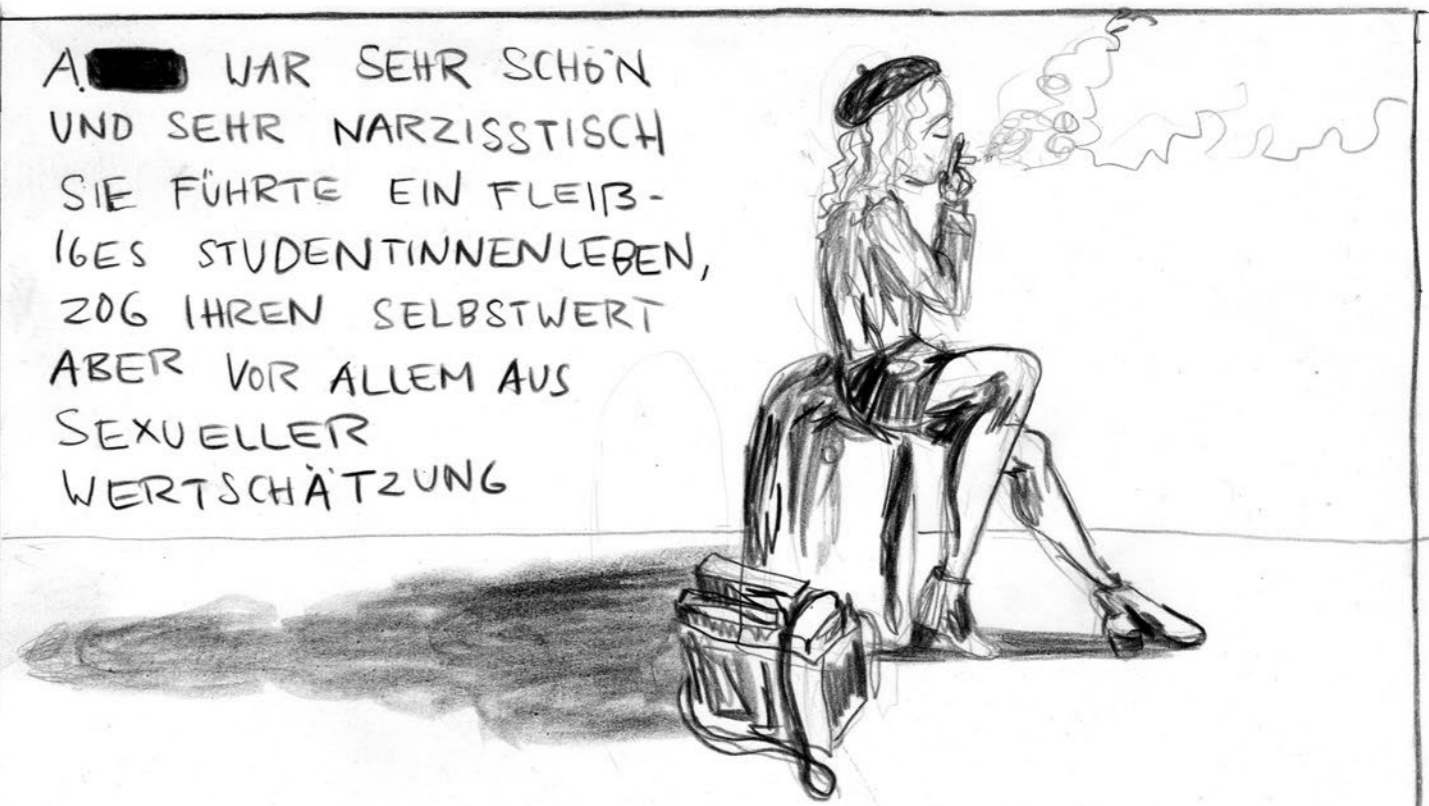 A. WAR SEHR SCHÖN
UND SEHR NARZISSTISCH
SIE FÜHRTE EIN FLEIß-
IGES STUDENTINNENLEBEN,
ZOG IHREN SELBSTWERT
ABER VOR ALLEM AUS
SEXUELLER
WERTSCHÄTZUNG